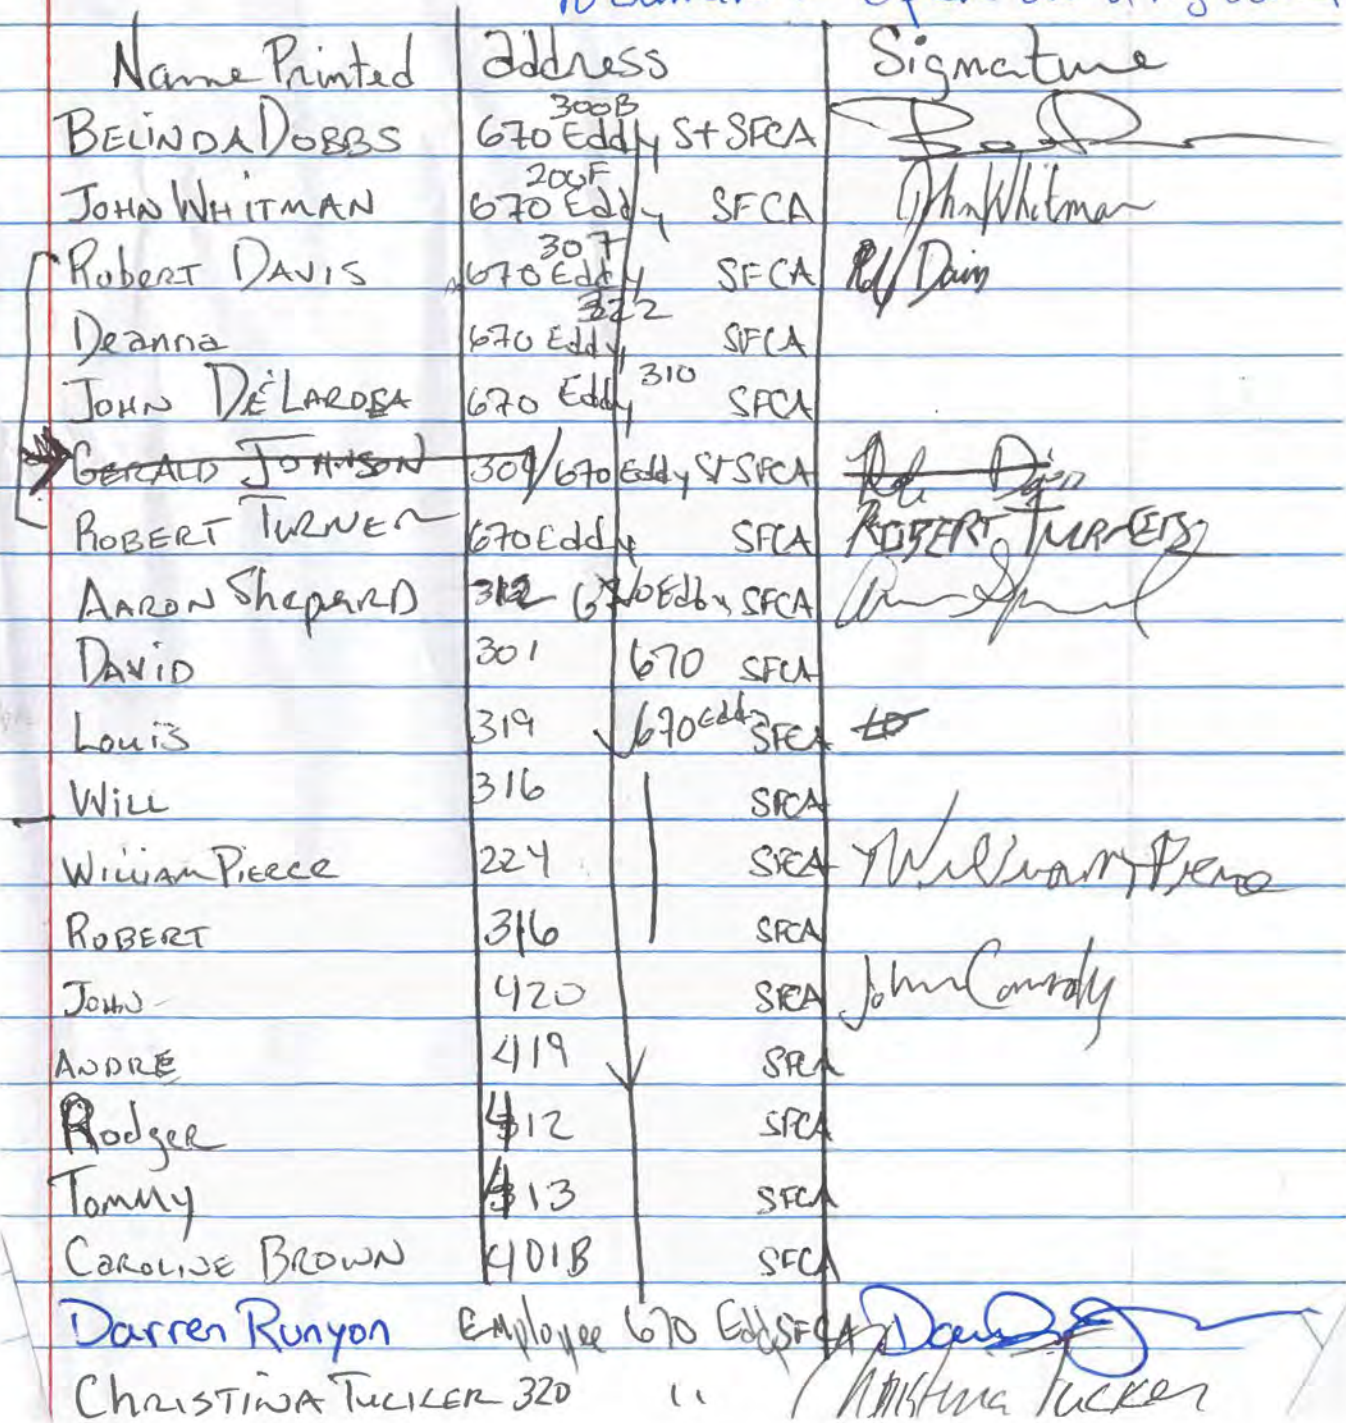 Name Printed address Signature
300B
BELINDA DOBBS 670 Eddy St SFCA
200F
JOHN WHITMAN 670 Eddy SFCA John Whitman
307
Robert DAVIS 670 Eddy SFCA
322
Deanna 670 Eddy SFCA
JOHN 670 Eddy 310 SFCA
GERALD JOHNSON 309/670 Eddy St SFCA
ROBERT TURNER 670 Eddy SFCA ROBERT
AARON ShepARD 312 670 Eddy SFCA
DAVID 301 670 SFCA
Louis 319 670 Eddy SFCA
WILL 316 SFCA
WILLIAM PIERCE 224 SFCA William Pierce
ROBERT 316 SFCA
JOHN 420 SFCA John
ANDRE 419 SFCA
Rodger 412 SFCA
Tommy 413 SFCA
CAROLINE BROWN 401B SFCA
Darren Runyon Employee 670 Eddy SFCA
CHRISTINA TUCKER 320 " Christina Tucker